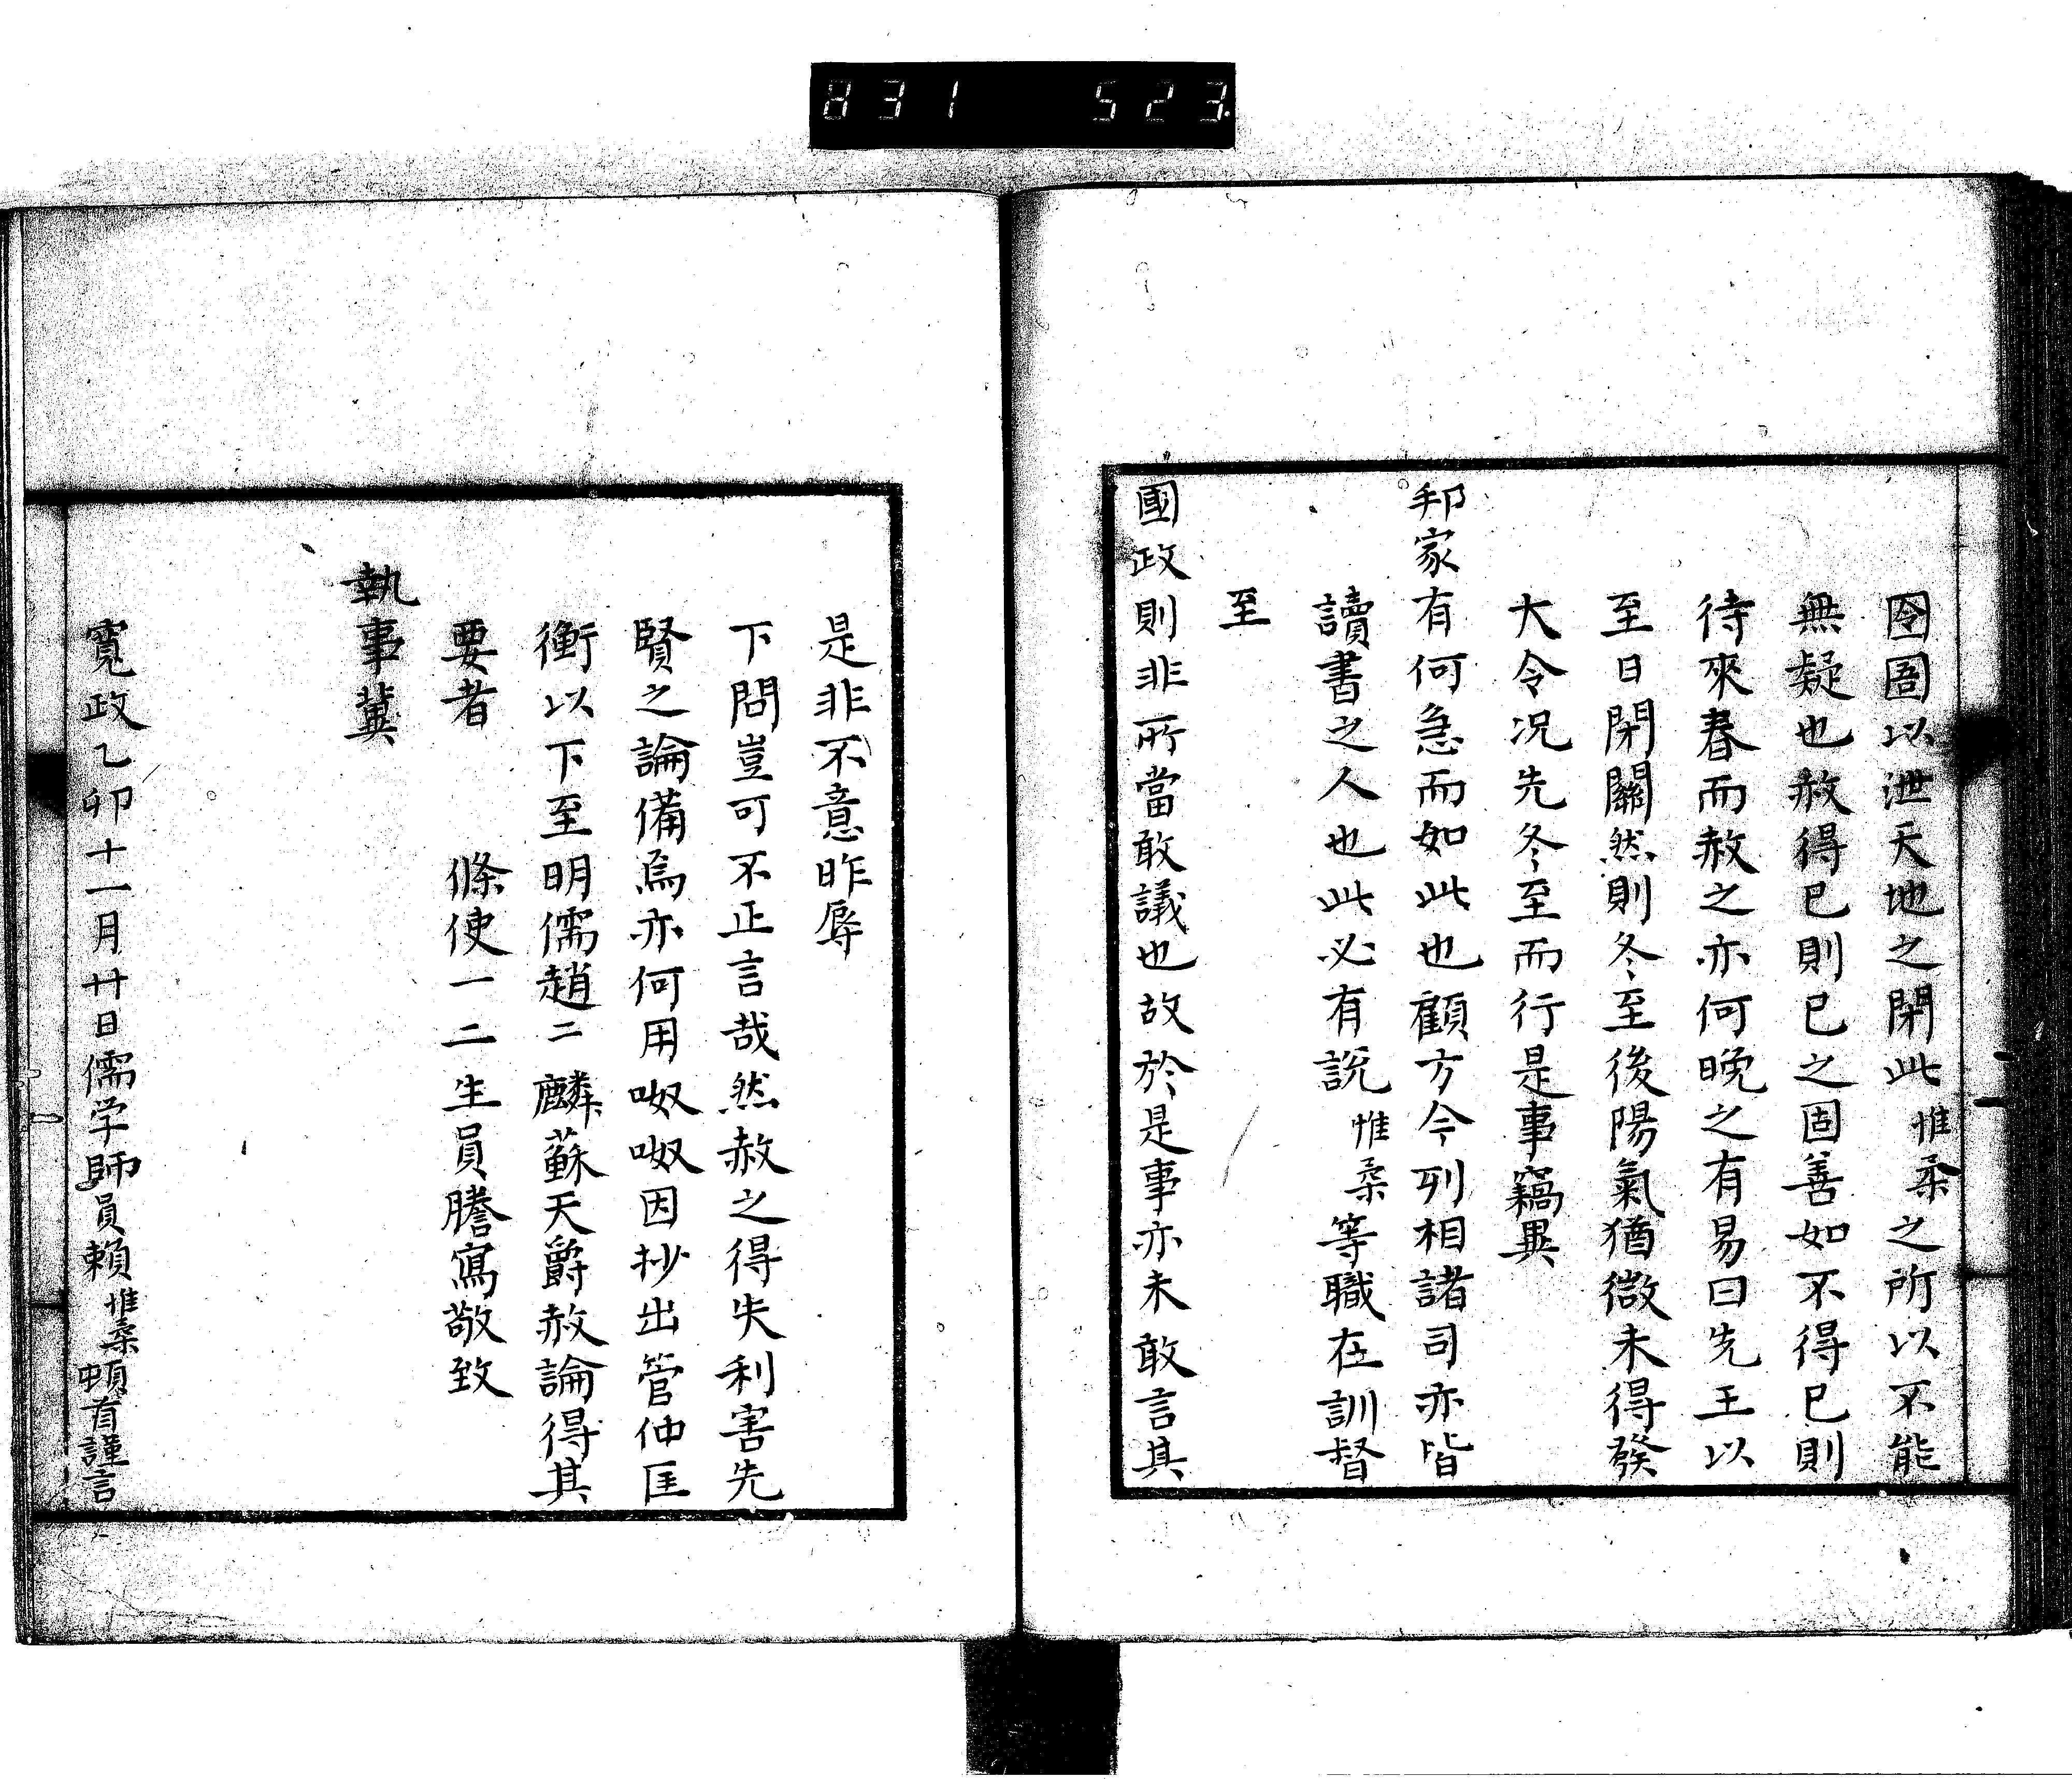 831 523
囹圄以泄天地之閉此惟柔之所以不能
無疑也赦得已則已之固善如不得已則
待來春而赦之亦何晩之有易曰先王以
至日閉關然則冬至後陽氣猶微未得發
大令况先冬至而行是事竊異
邦家有何急而如此也顧方今列相諸司亦皆
讀書之人也此必有説惟柔等職在訓督
至
國政則非所當敢議也故於是事亦未敢言其
是非不意昨辱
下問豈可不正言哉然赦之得失利害先
賢之論備焉亦何用呶呶因抄出管仲匡
衡以下至明儒趙二麟蘇天爵赦論得其
要者 條使一二生員謄寫敬致
執事冀
寛政乙卯十一月廿日儒学師員頼惟柔頓首謹言